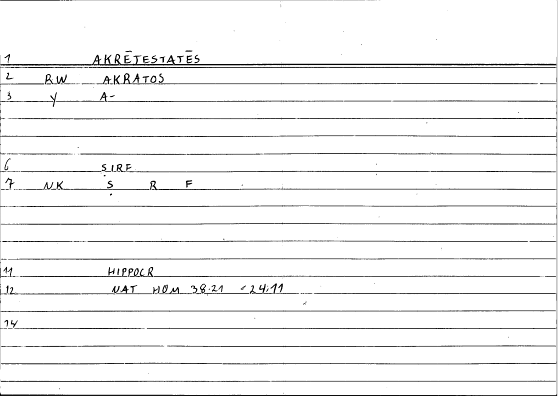 1 AKRĒTESTATĒS
2 RW AKRATOS
3 Y A-
6 ṢIRF
7 NK Ṣ R F
11 HIPPOCR
12 NAT HOM 38.21 <24.11
14